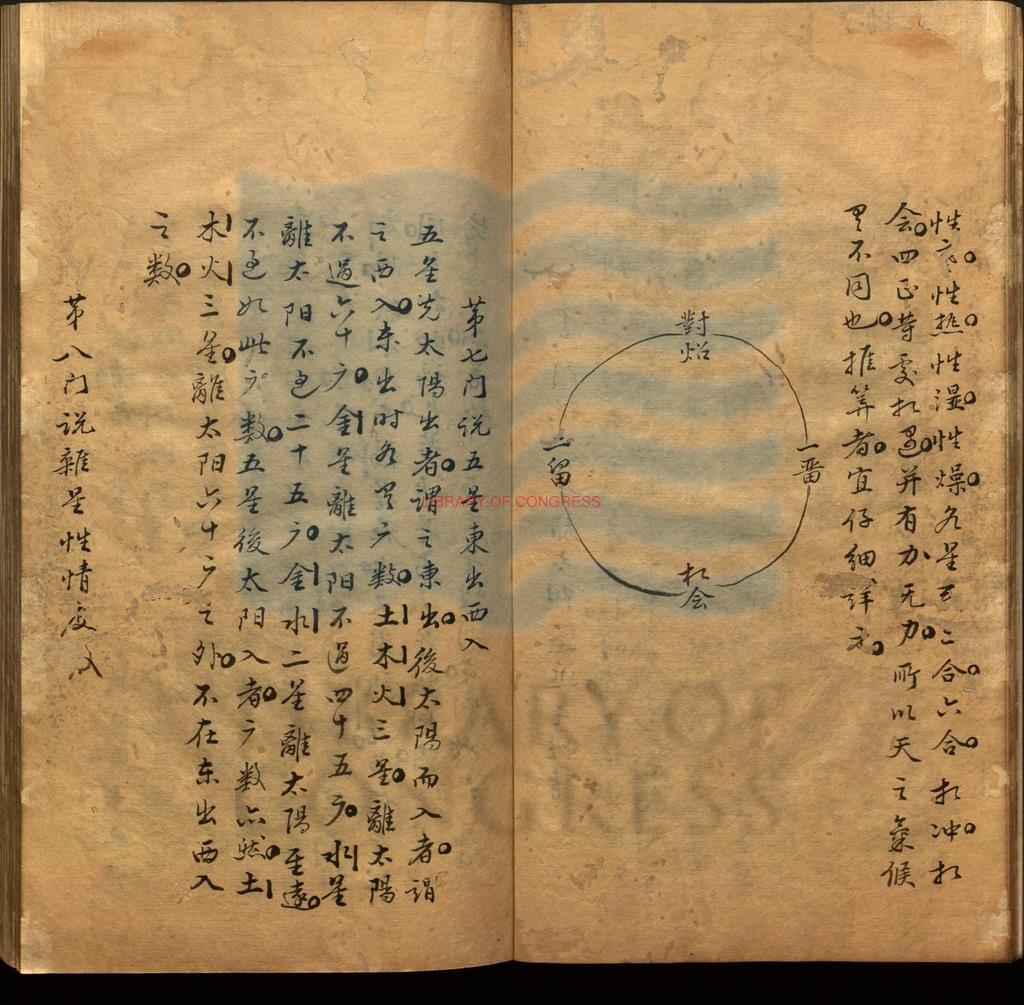 性。性热。性湿。性燥。各星二合。六合。相冲。相
会。四正等处相遇。并有力无力。所以天之氣候
異不同也。推筭者。宜仔细详之。
對炤
一留
二留
相会
第七门说五星東出西入
五星先太陽出者。谓之東出。後太陽而入者。謂
之西入。东出时各異度数。土木火三星。離太陽
不過六十度。金星離太阳不過四十五度。水星
離太阳不过二十五度。金水二星離太陽至遠。
不过如此度数。五星後太阳入者。度数亦然。土
木火三星。離太阳六十度之外。不在东出西入
之数。
第八门说雜星性情
LIBRARY OF CONGRESS